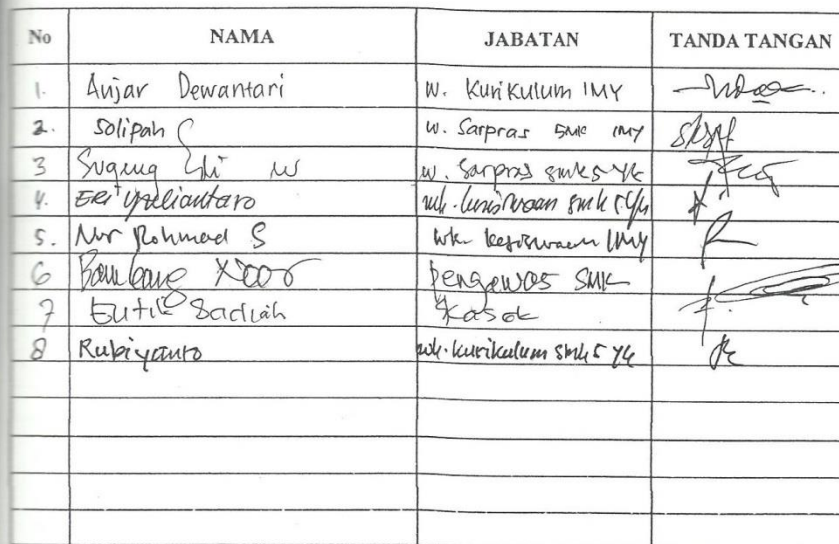 No NAMA JABATAN TANDA TANGAN
1. Anjar Dewantari W. Kurikulum IMY
2. Solipah S W. Sarpras SMK IMY
3 Sugeng W W. Sarpras smk 5 Yk
4. ERi Yuliantoro wk. kesiswaan smk 5 Yk
5. Nur Rohmad S wk. kesiswaan IMY
6 Bambang Noor pengawas SMK
7 Sadiah
8 Rubiyanto wk. kurikulum smk 5 Yk